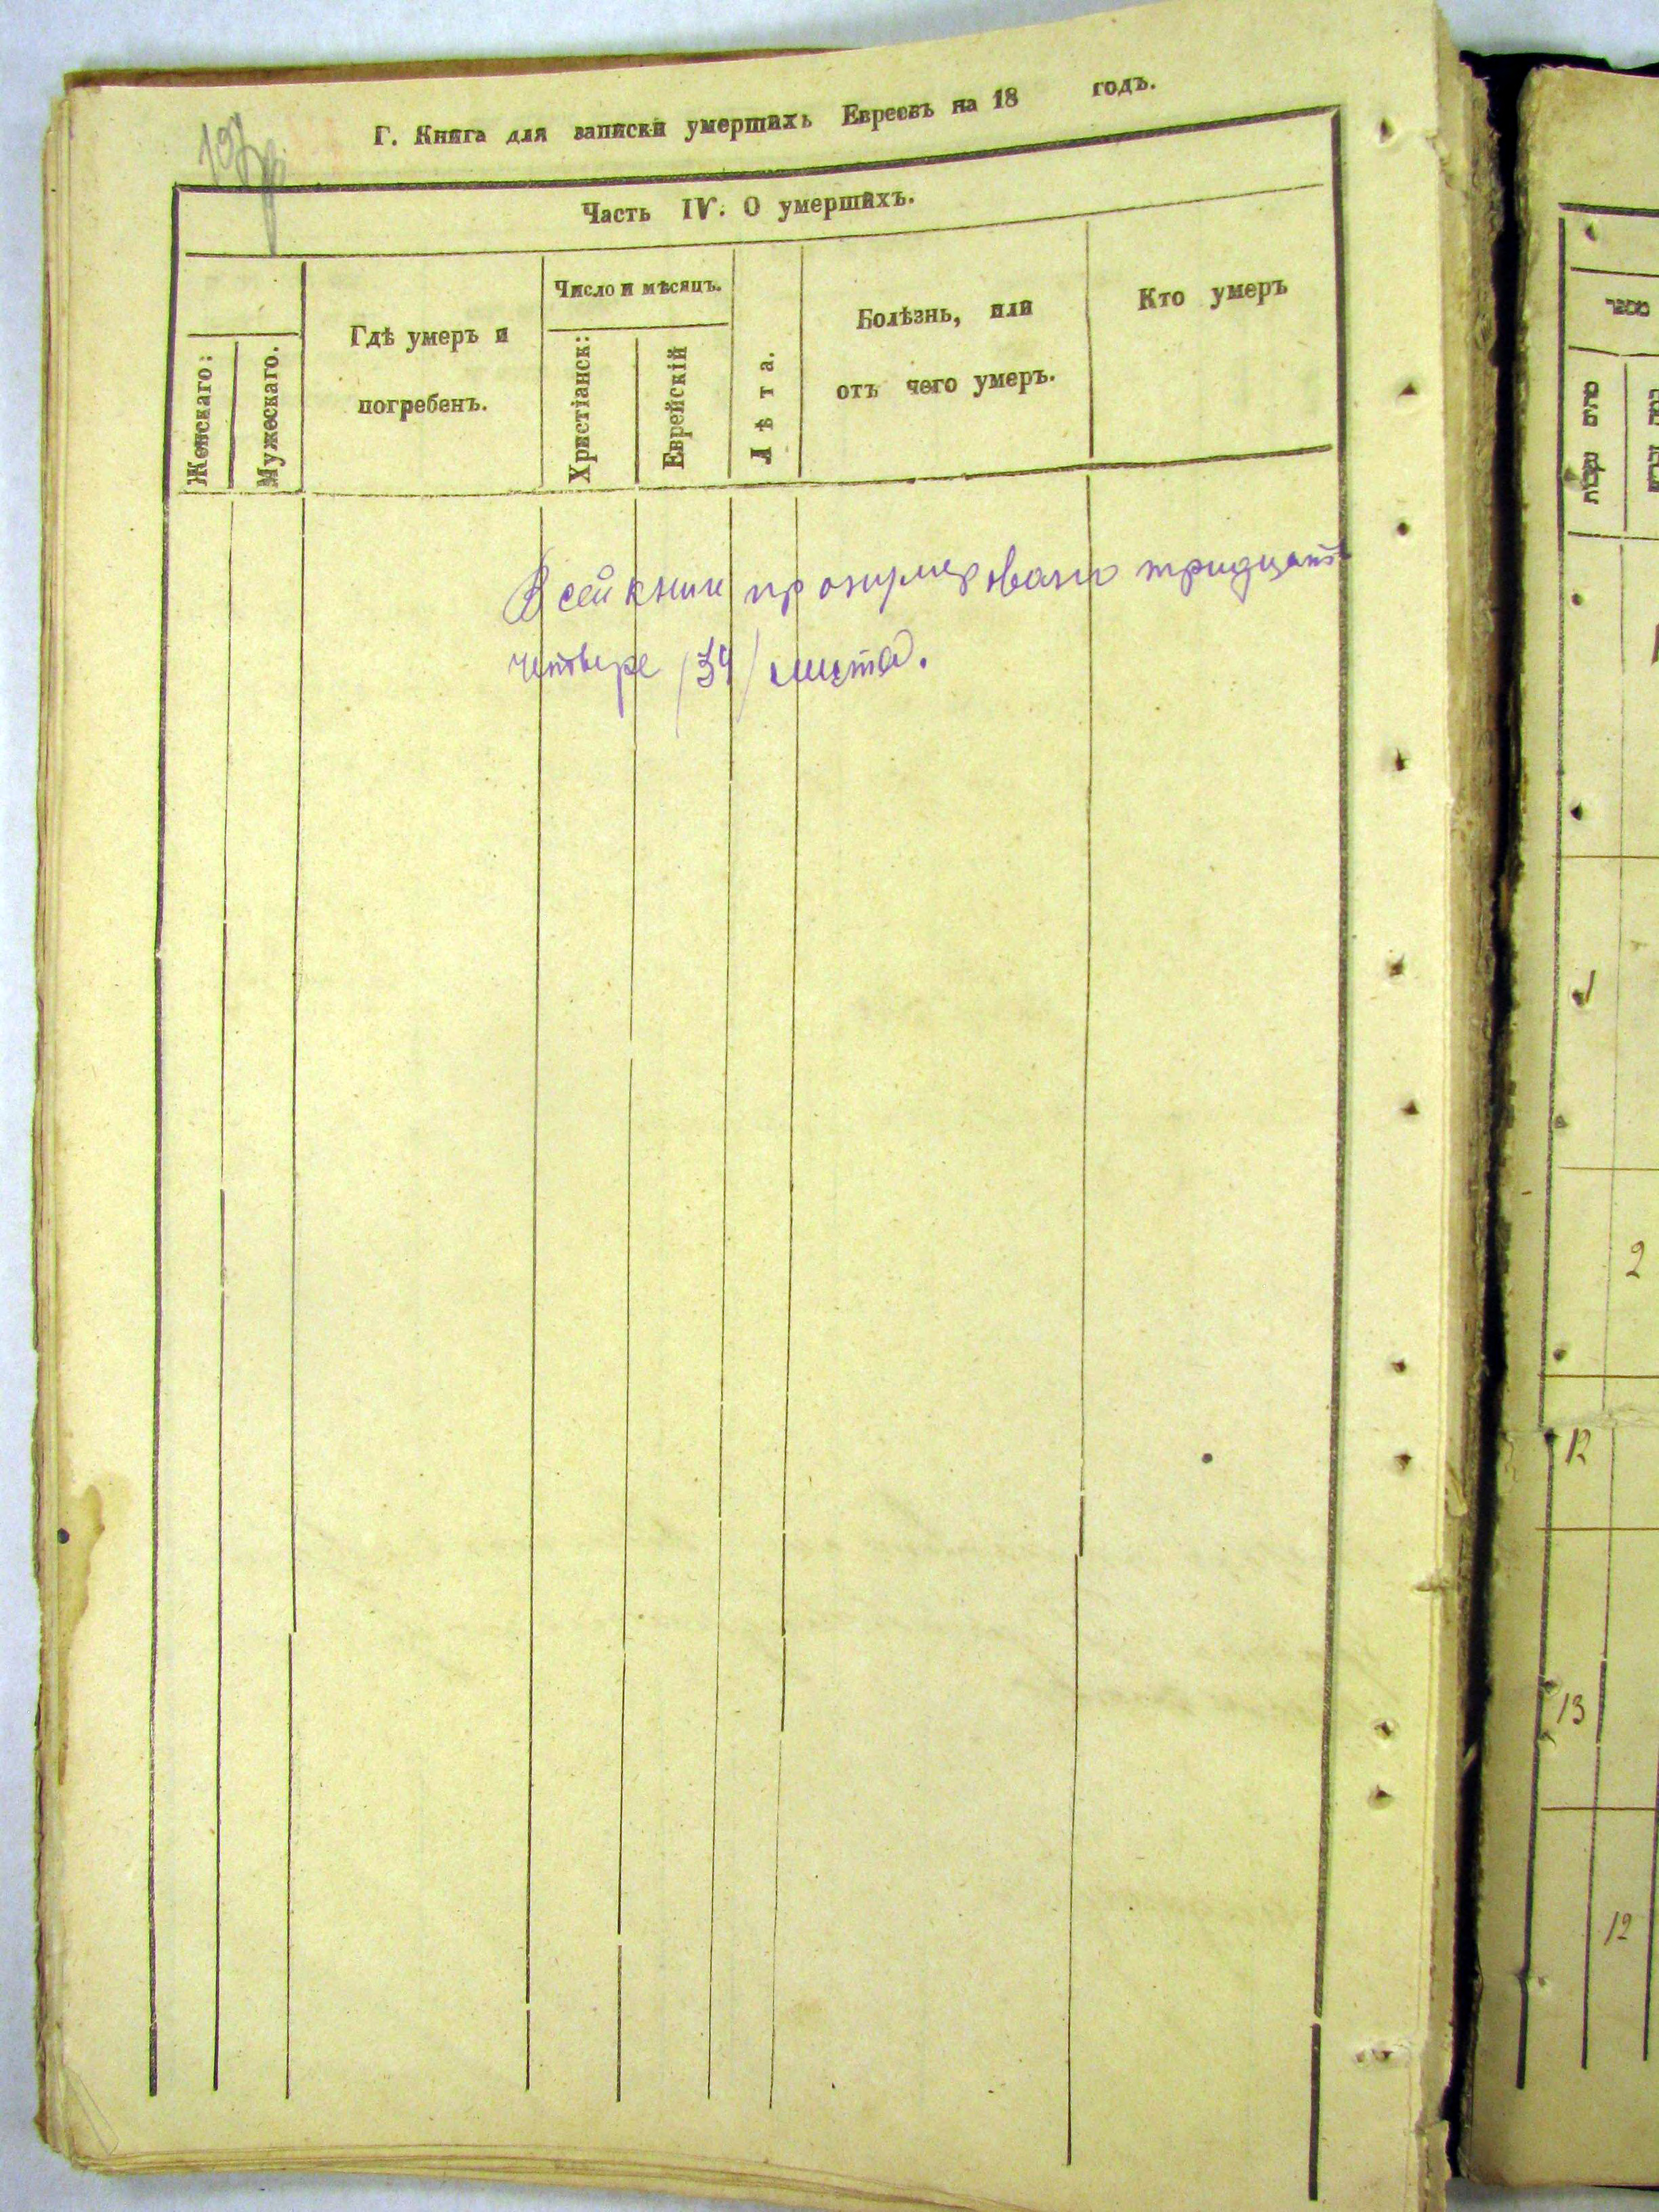 Г. Книга для записки умершихъ Евреевъ на 18 годъ.
Часть IV. О умершихъ.
Женскаго:
Мужескаго.
Гдѣ умеръ и
погребенъ.
Число и мѣсяцъ.
Христіанск:
Еврейскій
Лѣта.
Болѣзнь, или
отъ чего умеръ.
Кто умеръ
В сей книги пронумеровано тридцать
четыре /34/ листа.
מספר
2
12
13
12